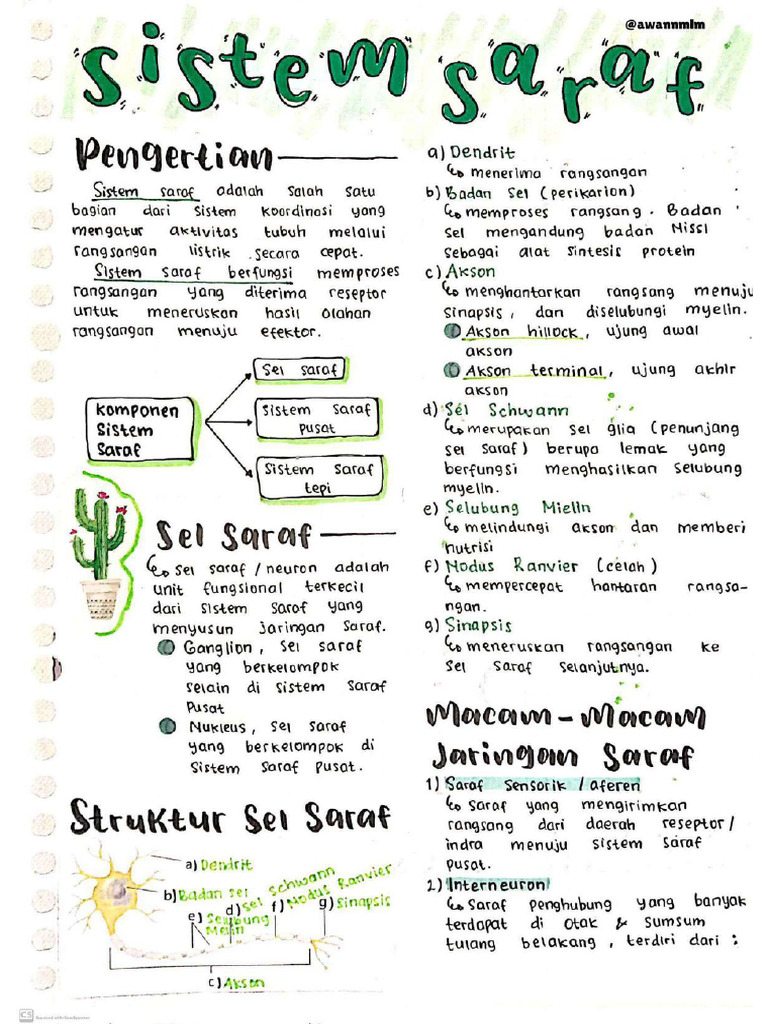 @awannmlm
sistem saraf
Pengertian
Sistem saraf adalah salah satu
bagian dari sistem koordinasi yang
mengatur aktivitas tubuh melalui
rangsangan listrik secara cepat.
Sistem saraf berfungsi memproses
rangsangan yang diterima reseptor
untuk meneruskan hasil olahan
rangsangan menuju efektor.
Komponen
Sistem
Saraf
Sel saraf
Sistem Saraf
pusat
Sistem Saraf
tepi
Sel Saraf
Sel saraf / neuron adalah
unit fungsional terkecil
dari sistem saraf yang
menyusun jaringan saraf.
Ganglion, sel saraf
yang berkelompok
selain di sistem saraf
Pusat
Nukleus, sel saraf
yang berkelompok di
Sistem Saraf pusat.
Struktur Sel Saraf
a) Dendrit
b) Badan sel
e) Selubung
Melin
d) Sel Schwann
f) Nodus Ranvier
g) Sinapsis
c) Akson
a) Dendrit
menerima rangsangan
b) Badan Sel (perikarion)
memproses rangsang. Badan
sel mengandung badan Nissl
sebagai alat sintesis protein
c) Akson
menghantarkan rangsang menuju
sinapsis, dan diselubungi myelin.
Akson hillock, ujung awal
akson
Akson terminal, ujung akhir
akson
d) Sel Schwann
merupakan sel glia (penunjang
sel saraf) berupa lemak yang
berfungsi menghasilkan selubung
myelin.
e) Selubung Mielin
melindungi akson dan memberi
nutrisi
f) Nodus Ranvier (celah)
mempercepat hantaran rangsa-
ngan.
g) Sinapsis
meneruskan rangsangan ke
sel saraf selanjutnya.
Macam-Macam
Jaringan Saraf
1) Saraf Sensorik / aferen
Saraf yang mengirimkan
rangsang dari daerah reseptor/
indra menuju sistem saraf
pusat.
2) Interneuron
Saraf penghubung yang banyak
terdapat di otak & sumsum
tulang belakang, terdiri dari :
CS